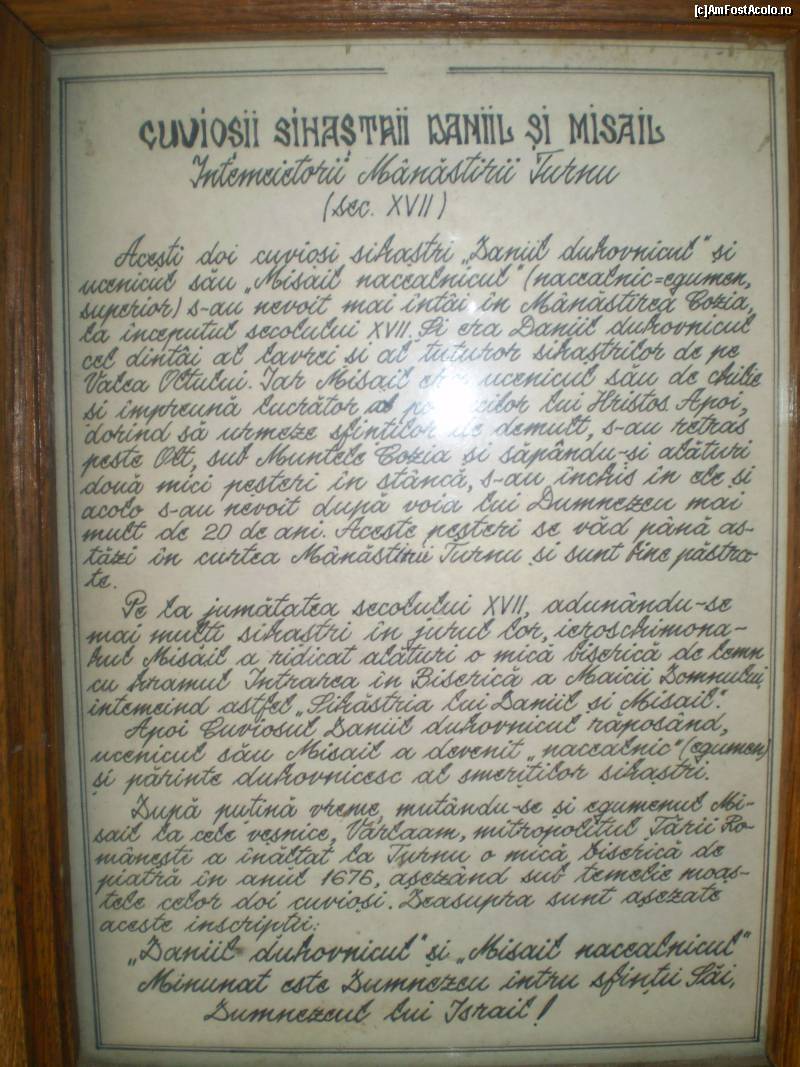 [c]AmFostAcolo.ro
CUVIOSII SIHAȘTRII DANIIL ȘI MISAIL
Intemeietorii Mânăstirii Turnu
(sec. XVII)
Acești doi cuvioși sihaștri „Daniil duhovnicul" și
ucenicul său „Misail nacealnicul" (nacealnic=egumen,
superior) s-au nevoit mai întâi în Mânăstirea Cozia,
la începutul secolului XVII. Și era Daniil duhovnicul
cel dintâi al lavrei și al tuturor sihaștrilor de pe
Valea Oltului. Iar Misail era ucenicul său de chilie
și împreună lucrător al lui Hristos. Apoi,
dorind să urmeze sfinților de demult, s-au retras
peste Olt, sub Muntele Cozia și săpându-și alături
două mici peșteri în stâncă, s-au închis în ele și
acolo s-au nevoit după voia lui Dumnezeu mai
mult de 20 de ani. Aceste peșteri se văd până as-
tăzi în curtea Mânăstirii Turnu și sunt bine păstra-
te.
Pe la jumătatea secolului XVII, adunându-se
mai mulți sihaștri în jurul lor, ieroschimona-
hul Misail a ridicat alături o mică biserică de lemn
cu hramul Intrarea în Biserică a Maicii Domnului,
intemeind astfel „Sihăstria lui Daniil și Misail".
Apoi Cuviosul Daniil duhovnicul răposând,
ucenicul său Misail a devenit „nacealnic" (egumen)
și părinte duhovnicesc al smeriților sihaștri.
După puțină vreme, mutându-se și egumenul Mi-
sail la cele veșnice, Varlaam, mitropolitul Țării Ro-
mânești a înălțat la Turnu o mică biserică de
piatră în anul 1676, așezând sub temelie moaș-
tele celor doi cuvioși. Deasupra sunt așezate
aceste inscripții:
„Daniil duhovnicul" și „Misail nacealnicul"
Minunat este Dumnezeu întru sfinții Săi,
Dumnezeul lui Israil!